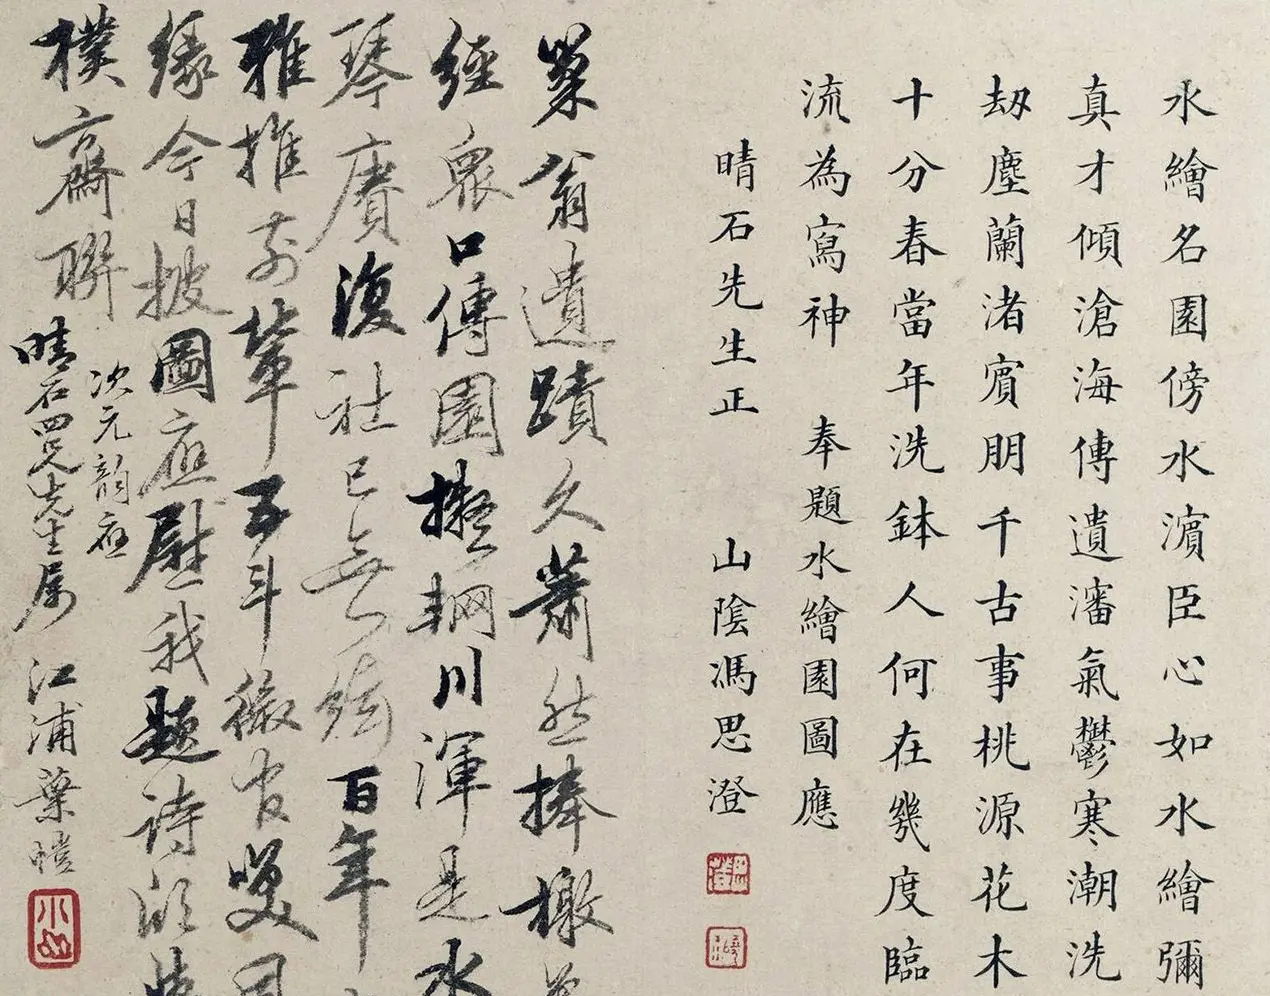 水繪名園傍水濱臣心如水繪彌
真才傾滄海傳遺瀋氣鬱寒潮洗
劫塵蘭渚賓朋千古事桃源花木
十分春當年洗鉢人何在幾度臨
流為寫神
奉題水繪園圖應
晴石先生正
山陰馮思澄
巢翁遺蹟久蕭然捧檄
經眾口傳園擬輞川渾是水
琴賡復社已無絃百年
雅推前輩五斗微官笑
緣今日披圖應慰我題詩
樸齋聯
次元韵應
晴石四兄先生属
江浦葉